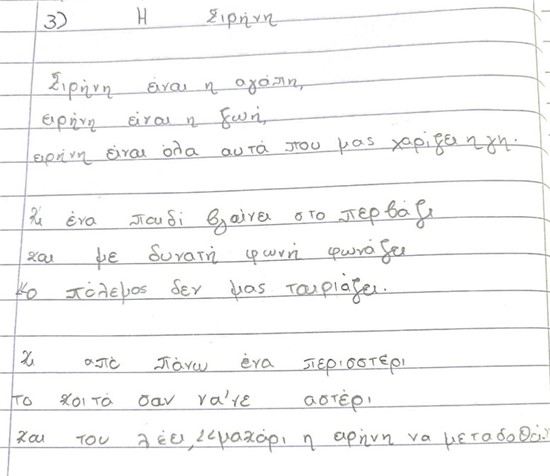 3) Η Ειρήνη
Ειρήνη είναι η αγάπη,
ειρήνη είναι η ζωή,
ειρήνη είναι όλα αυτά που μας χαρίζει η γη.
Κι ένα παιδί βγαίνει στο περβάζι
και με δυνατή φωνή φωνάζει
<<ο πόλεμος δεν μας ταιριάζει.
κι από πάνω ένα περιστέρι
το κοιτά σαν να'νε αστέρι
και του λέει, <<μακάρι η ειρήνη να μεταδοθεί.>>